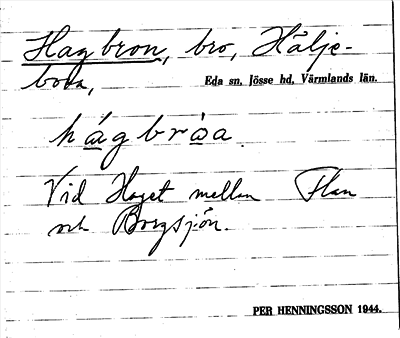 Hagbron, bro, Hälje-
boda,
Eda sn, Jösse hd, Värmlands län.
hágbròa.
Vid Haget mellan Flan
och Borgsjön.
PER HENNINGSSON 1944.